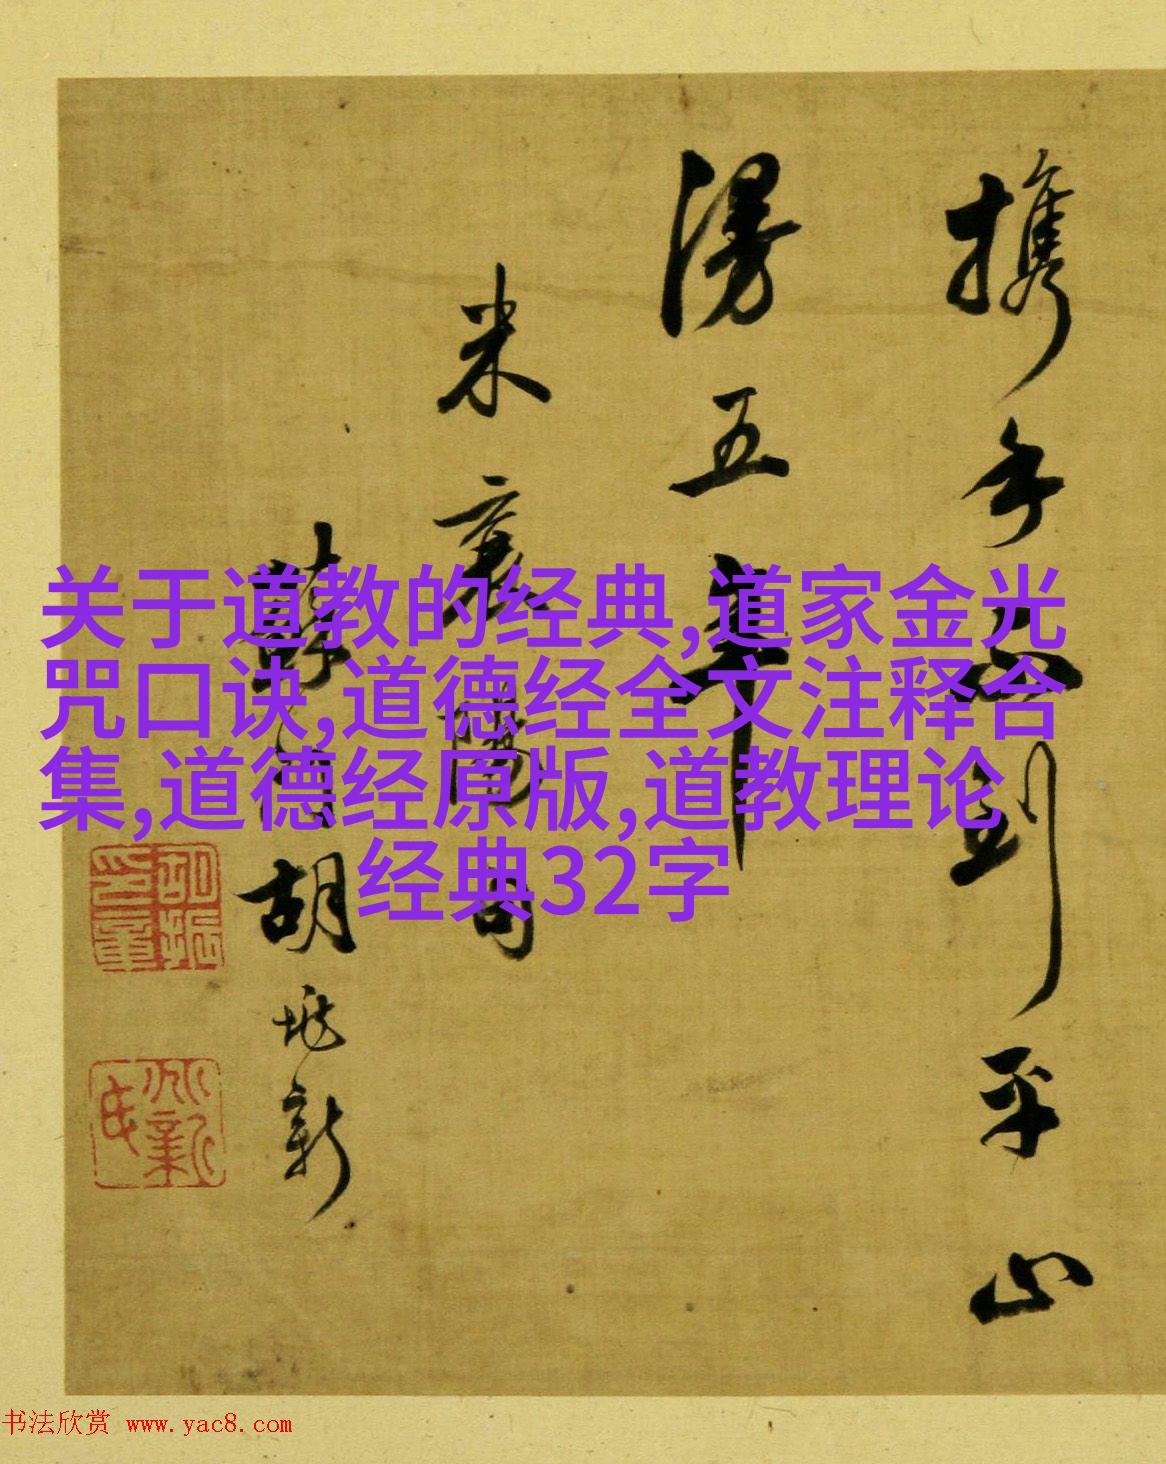 携手到平山
漫五
米襄陽句
胡新
关于道教的经典,道家金光
咒口诀,道德经全文注释合
集,道德经原版,道教理论
经典32字
书法欣赏 www.yac8.com